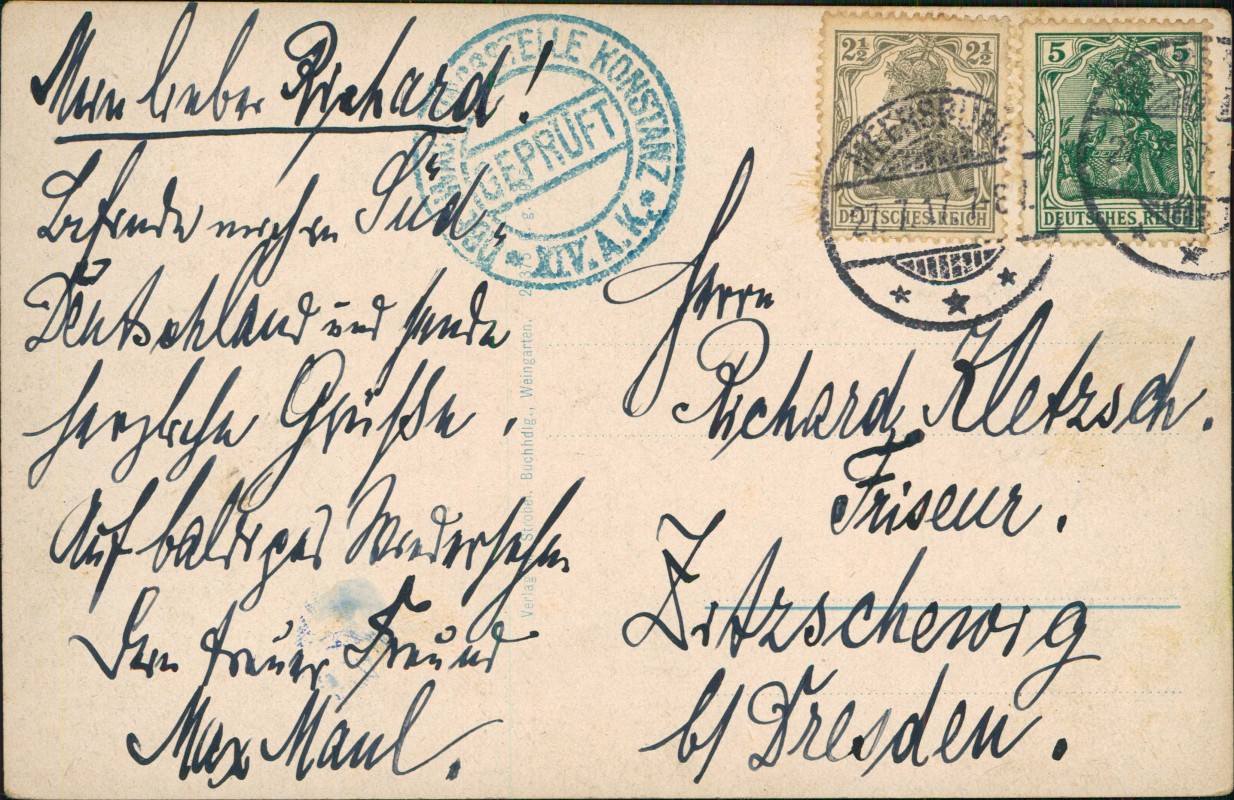 Mein lieber Richard!
Befinde mich in „Süd„
Deutschland und sende
herzliche Grüße.
Auf baldiges Wiedersehn
Dein treuer Freund
Max Maul.
ÜBERWACHUNGSSTELLE KONSTANZ
GEPRÜFT
* XIV. A. K. *
Verlag Strobel Buchhdlg., Weingarten.
2½ 2½
DEUTSCHES REICH
5 5
DEUTSCHES REICH
MEERSBURG
27.7.17.7-8
Herrn
Richard Kletzsch.
Friseur.
Zitzschewig
b/ Dresden.